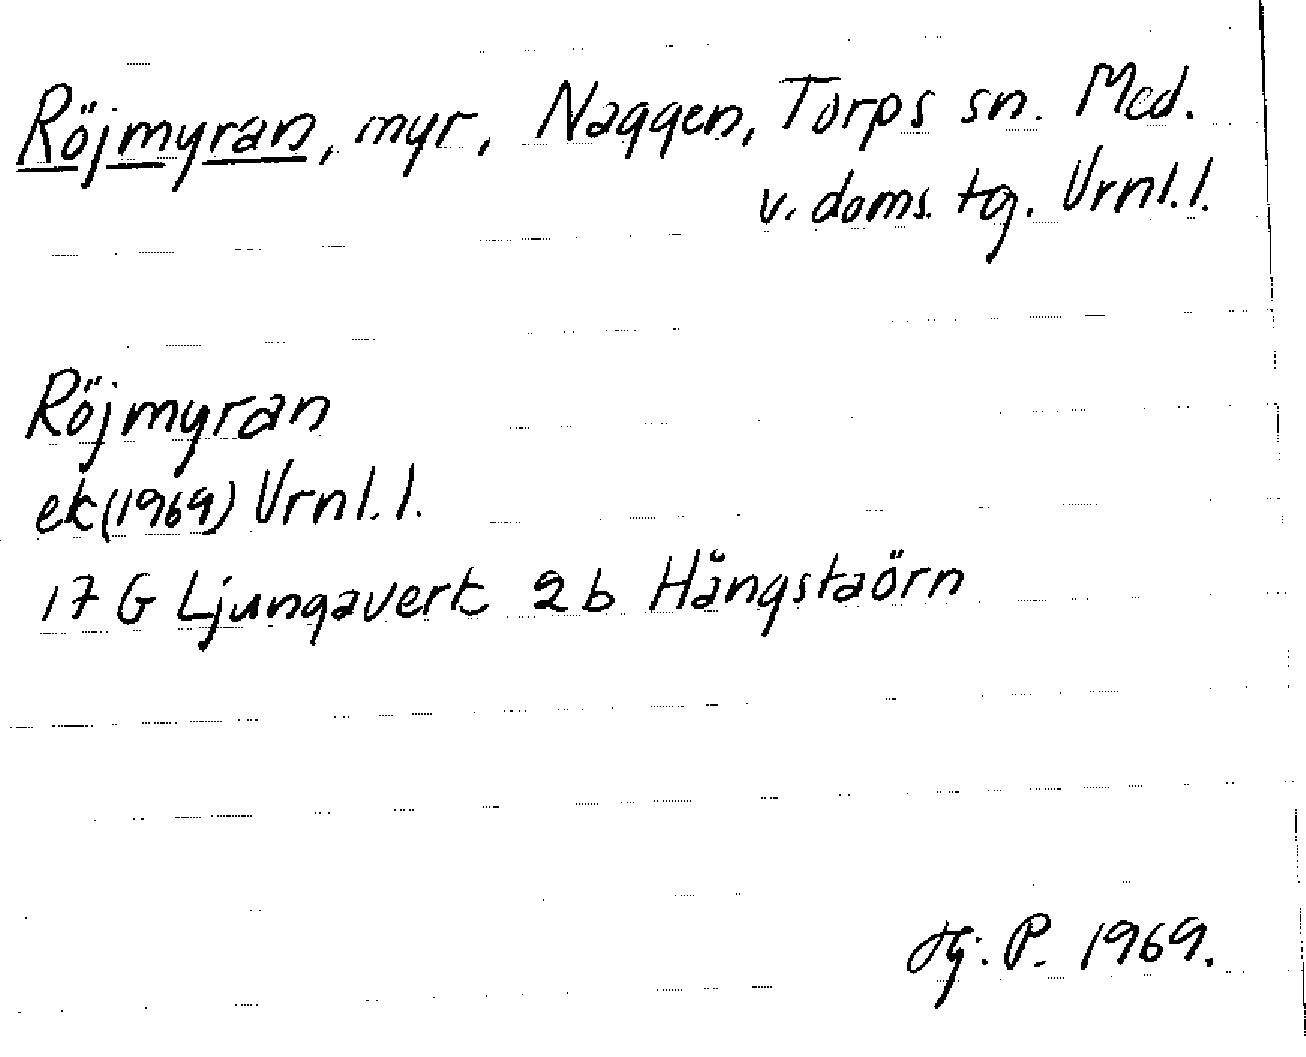 Röjmyran, myr, Naggen, Torps sn. Med.
v. doms. tg. Vrnl. l.
Röjmyran
ek (1969) Vrnl. l.
17 G Ljungaverk 2 b Hångstaörn
Hj. P. 1969.